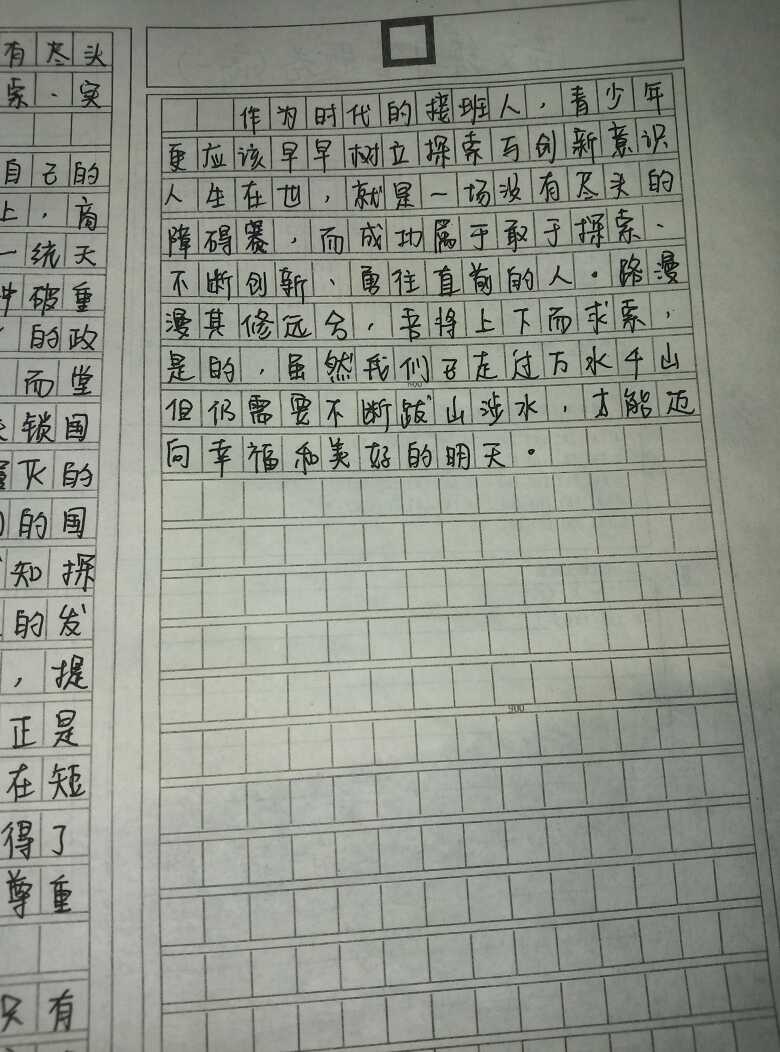 有尽头
索、实
自己的
上，商
一统天
冲破重
的政
而堂
锁国
灰的
的国
知探
的发
，提
正是
在短
得了
尊重
只有
作为时代的接班人，青少年
更应该早早树立探索与创新意识
人生在世，就是一场没有尽头的
障碍赛，而成功属于敢于探索、
不断创新、勇往直前的人。路漫
漫其修远兮，吾将上下而求索，
是的，虽然我们已走过万水千山
800
但仍需要不断跋山涉水，才能迈
向幸福和美好的明天。
900